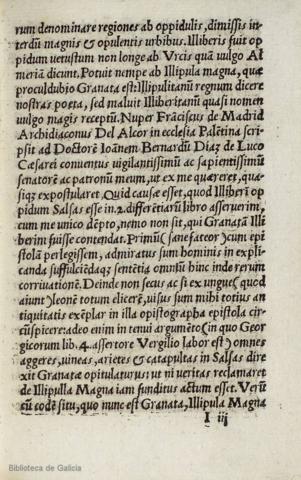 rum denominare regiones ab oppidulis, dimissis in-
terdũ magnis & opulentis urbibus. Illiberis fuit op
pidum vetustum non longe ab Vrcis quã vulgo Al
meriã dicunt. Potuit nempe ab Illipula magna, quæ
proculdubio Granata est: Illipulitanũ regnum dicere
nostras poeta, sed maluit Illiberitanũ quasi nomen
vulgo magis receptũ. Nuper Frãciscus de Madrid
Archidiaconus Del Alcor in ecclesia Palẽtina scri-
psit ad Doctorẽ Ioãnem Bernardũ Diaz de Luco
Cæsarei conventus vigilantissimũ ac sapientissimũ
senatorẽ ac patronũ meum, ut ex me quæreret, qua-
siqz expostularet. Quid causæ esset, quod Illiberi op
pidum Salsas esse in .2. differẽtiarũ libro asseverim,
cum me unico dẽpto, nemo non sit, qui Granatã Illi
berim fuisse contendat. Primũ (sane fateor) cum epi
stolam perlegissem, admiratus sum hominis in expli-
canda suffulciẽdaqz sentẽtia omniũ hinc inde rerum
corrivationẽ. Deinde non secus ac si ex ungue (quod
aiunt) leonẽ totum elicerẽ, visus sum mihi totius an
tiquitatis exẽplar in illa opistographa epistola cir-
cũspicere: adeo enim in tenui argumẽto (in quo Geor
gicorum lib. 4. assertore Vergilio labor est) omnes
aggeres, vineas, arietes & catapultas in Salsas dire
xit Granatæ opitulaturus: ut ni veritas reclamaret
de Illipulla Magna iam funditus actum esset. Verũ
cũ eodẽ situ, quo nunc est Granata, Illipula Magna
I iij
Biblioteca de Galicia